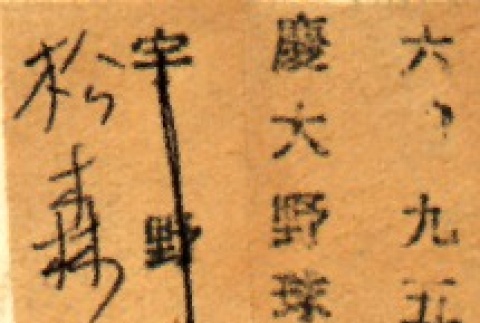 六、九五
慶大野球
宇野
松森